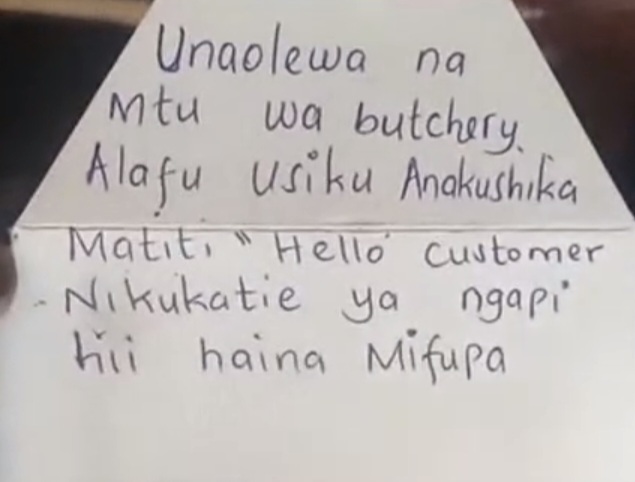 Unaolewa na
Mtu wa butchery.
Alafu Usiku Anakushika
Matiti "Hello customer
Nikukatie ya ngapi
hii haina Mifupa